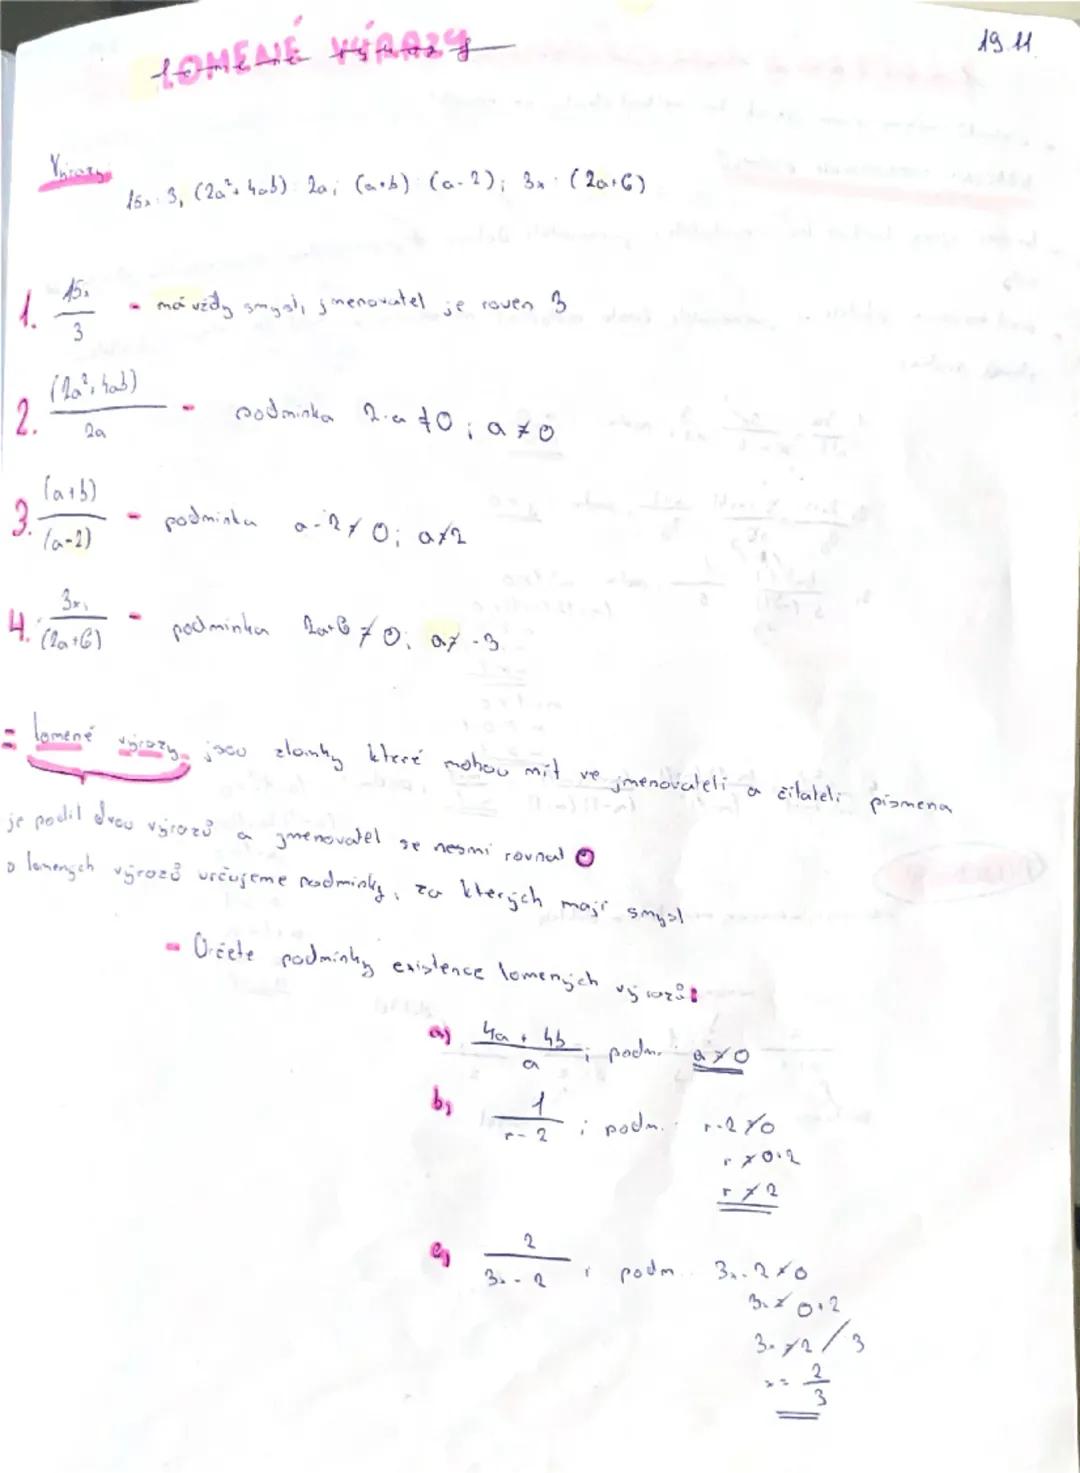 LOMENÉ VÝRAZY
19.11.
Výrazy:
15x : 3, (2a² + 4ab) : 2a; (a+b) : (a-2); 3x : (2a+6)
1. 15x / 3 - má vždy smysl, jmenovatel je roven 3
2. (2a² + 4ab) / 2a - podmínka 2·a ≠ 0; a ≠ 0
3. (a+b) / (a-2) - podmínka a-2 ≠ 0; a ≠ 2
4. 3x / (2a+6) - podmínka 2a+6 ≠ 0; a ≠ -3
= lomené výrazy jsou zlomky které mohou mít ve jmenovateli a čitateli písmena
je podíl dvou výrazů a jmenovatel se nesmí rovnat 0
lomených výrazů určujeme podmínky, za kterých mají smysl
- Určete podmínky existence lomených výrazů:
a) 4a + 4b / a ; podm. a ≠ 0
b) 1 / r - 2 ; podm. r - 2 ≠ 0
r ≠ 0+2
r ≠ 2
c) 2 / 3x - 2 ; podm. 3x - 2 ≠ 0
3x ≠ 0+2
3x ≠ 2 / 3
x = 2/3